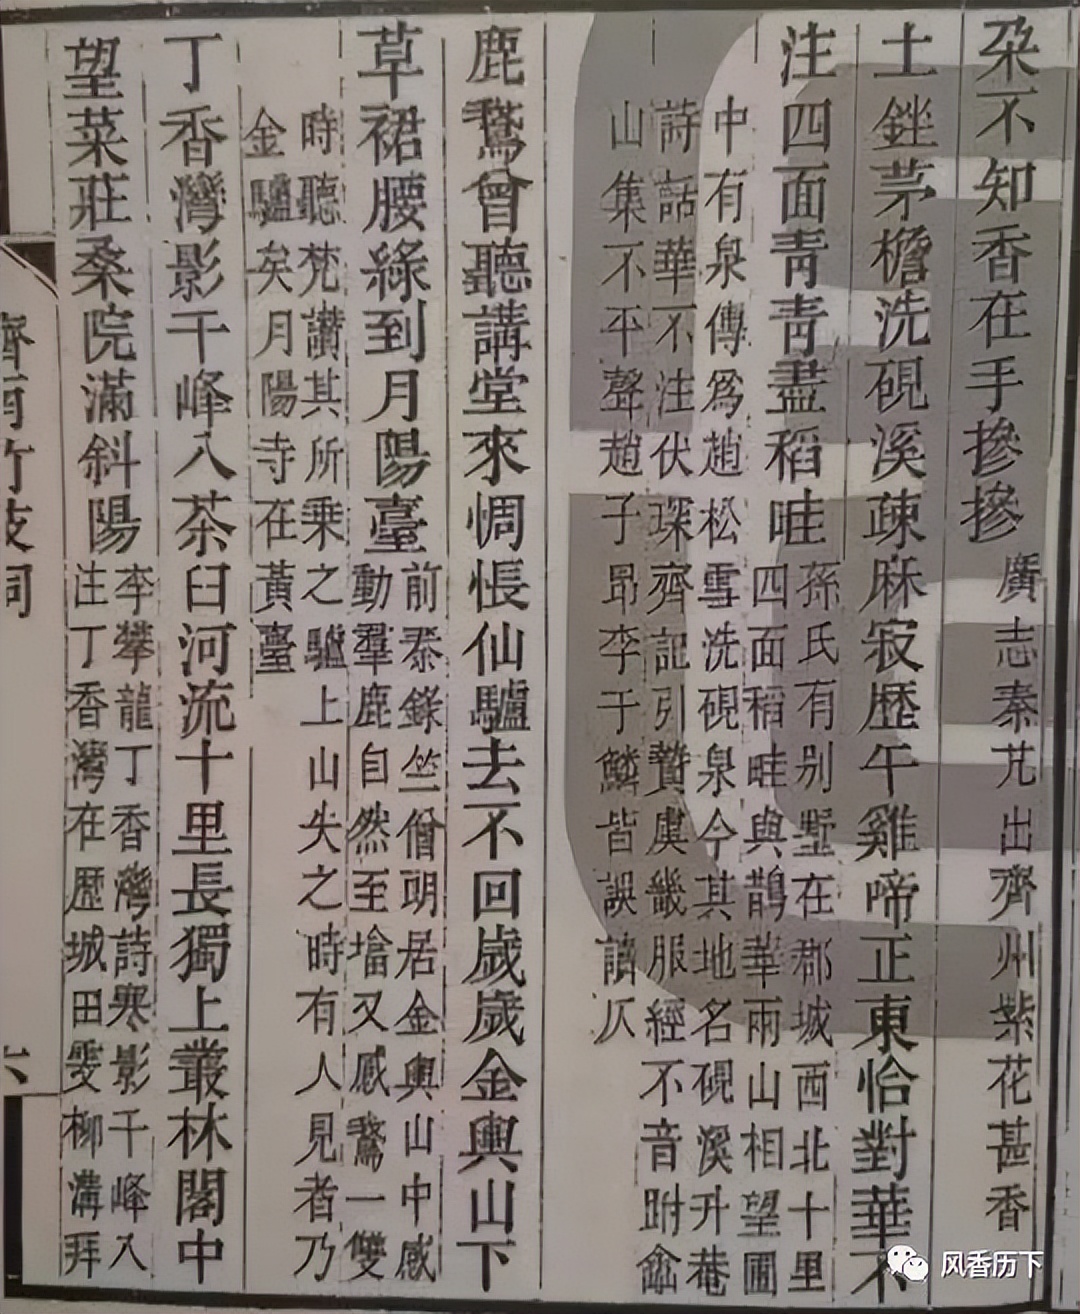 朵不知香在手摻摻
廣志秦芃出齊州紫花甚香
土銼茅檐洗硯溪疎麻寂歴午雞啼正東恰對華不
注四面靑靑盡稻畦
孫氏有别墅在郡城西北十里
四面稻畦與鵲華兩山相望圃
中有泉傳爲趙松雪洗硯泉今其地名硯溪升菴
詩話華不注伏琛齊記引贄虞畿服經不音跗
山集不平聲趙子昻李于鱗皆誤讀仄
鹿鶩曾聽講堂來惆悵仙驢去不回歲歲金輿山下
草裙腰綠到月陽臺
前秦錄竺僧朗居金輿山中感
動羣鹿自然至墖又感鶩一雙
時聽梵讃其所乗之驢上山失之時有人見者乃
金驢矣月陽寺在黃臺
丁香灣影千峰入茶臼河流十里長獨上叢林閣中
望菜莊桑院滿斜陽
李攀龍丁香灣詩寒影千峰入
注丁香灣在歴城田雯柳溝拜
濟南竹枝詞
六
风香历下